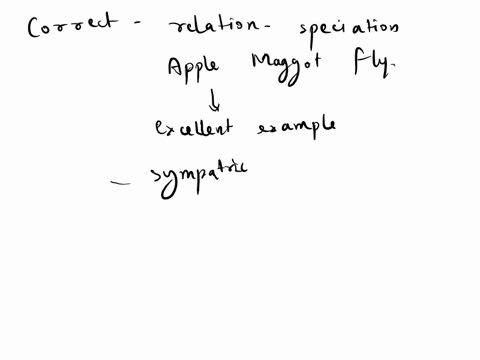 Correct - relation - speciation
Apple Maggot fly.
↓
excellent example
— sympatric